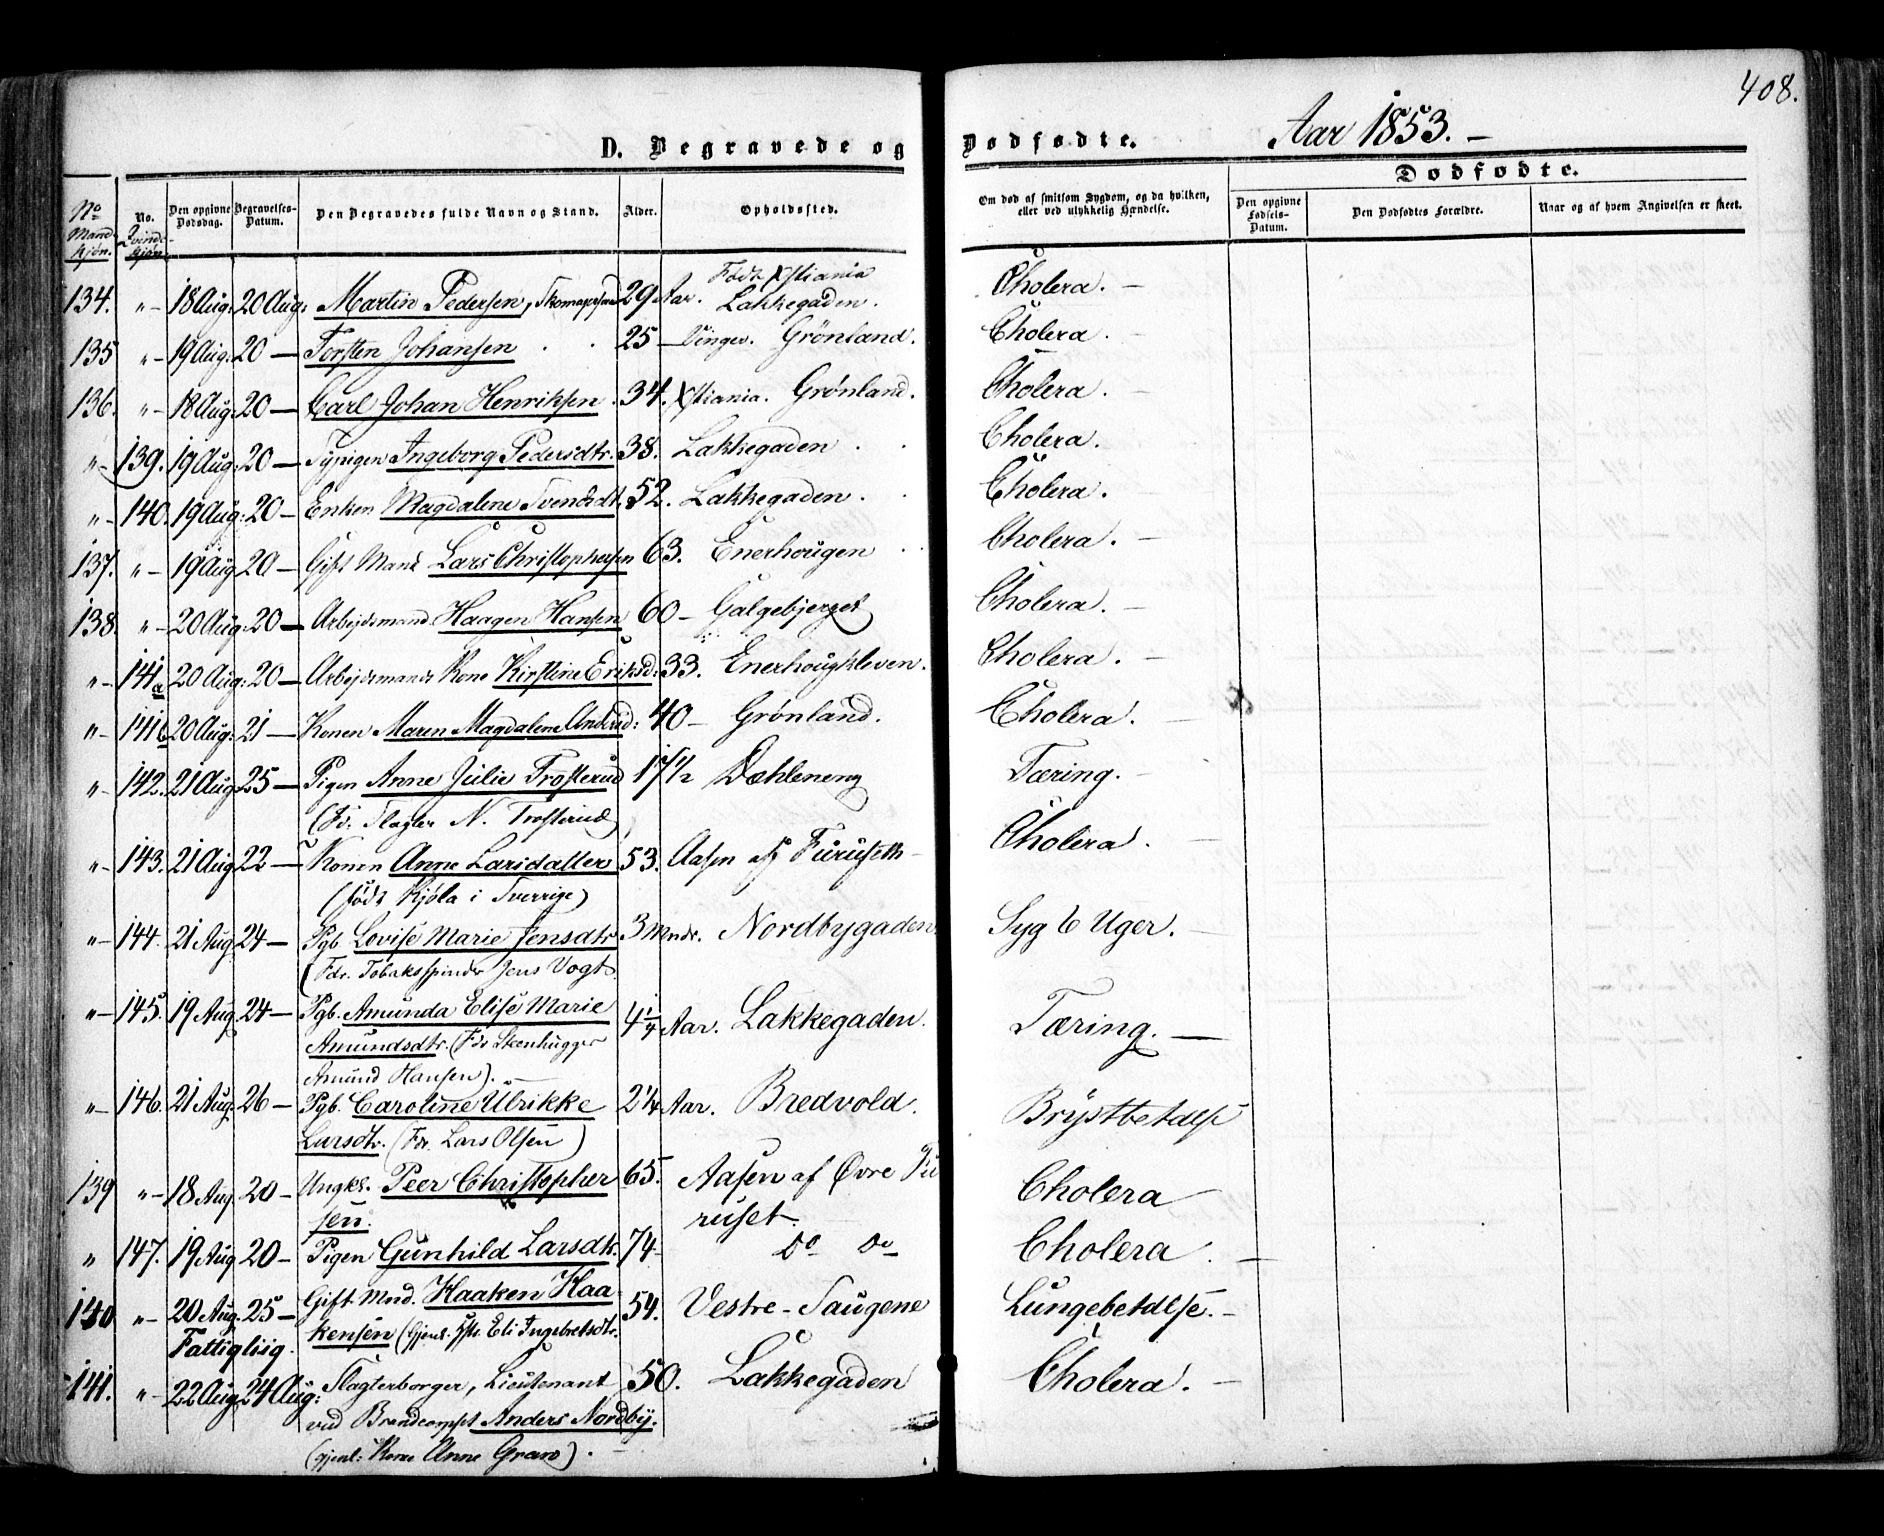 408.
D. Begravede og Dødfødte. Aar 1853. –
No Mandkjøn. No. Qvindekjøn. Den opgivne Dødsdag. Begravelses-Datum. Den Begravedes fulde Navn og Stand. Alder. Opholdssted. Om død af smitsom Sygdom, og da hvilken, eller ved ulykkelig Hændelse. Dødfødte. Den opgivne Fødsels-Datum. Den Dødfødtes Forældre. Naar og af hvem Angivelsen er skeet.
134. "– 18 Aug: 20 Aug: Martin Pedersen, 29 Aar. Født Xstiania Lakkegaden. Cholera. –
135 "– 19 Aug: 20 – Torsten Johansen 25 – Vinger. Grönland. Cholera.
136. "– 18 Aug: 20 – Carl Johan Henriksen. 34. Xstiania. Grønland. Cholera.
"– 139. 19 Aug: 20 – Ingeborg Pedersdtr. 38. Lakkegaden Cholera.
"– 140. 19 Aug: 20 – Enken Magdalene Svendsdt. 52. Lakkegaden. Cholera.
137. "– 19 Aug 20 – Gift Mand Lars Christophersen 63. Enerhougen Cholera. –
138. "– 20 Aug: 20 – Arbejdsmand Haagen Hansen 60 – Galgebjerget Cholera. –
"– 141a 20 Aug: 20 – Arbejdsmands Kone Kirstine Eriksd: 33. Enerhougkleven. Cholera. –
"– 141b 20 Aug: 21 – Konen Maren Magdalene Andersd: 40 – Grønland. Cholera. –
"– 142. 21 Aug 25 – Pigen Anne Julie Trosterud 17 1/2 Dæhleneng Tæring. –
(Fdr. Slagter N. Trosterud)
"– 143. 21 Aug 22 – Konen Anne Larsdatter 53. Aasen af Furuseth – Cholera. –
(født Kjøla i Sverrige)
"– 144. 21 Aug 24 – Pgb. Lovise Marie Jensdtr 3 Mndr. Nordbygaden. Syg 6 Uger. –
(Fdr. Tobaksspinder Jens Vogt.
"– 145. 19 Aug 24 – Pgb. Amunda Elise Marie 4 1/4 Aar. Lakkegaden. Tæring. –
Amundsdtr. (Fdr Steenhugger
Amund Hansen). –
"– 146. 21 Aug. 26 – Pgb. Caroline Ulrikke 2 1/4 Aar. Bredvold. Brystbetdlse
Larsdtr. (Fdr. Lars Olsen)
139 "– 18 Aug 20 – Ungkl. Peer Christopher 65. Aasen af Øvre Fu Cholera
sen. ruset.
" 147. 19 Aug 20 – Pigen Gunhild Larsdtr. 74 – Do Do Cholera. –
140 "– 20 Aug. 25 – Gift Mnd. Haaken Haa 54. Vestre-Saugene Lungebetdlse. –
Fattiglig. kensen (Gjenl. Eli Ingebretsdtr.
141. "– 22 Aug 24 Aug: Slagterborger, Lieutenant 50. Lakkegaden Cholera. –
ved Brandcompt Anders Nordby.
(gjenl: Kone Anne Gran). –